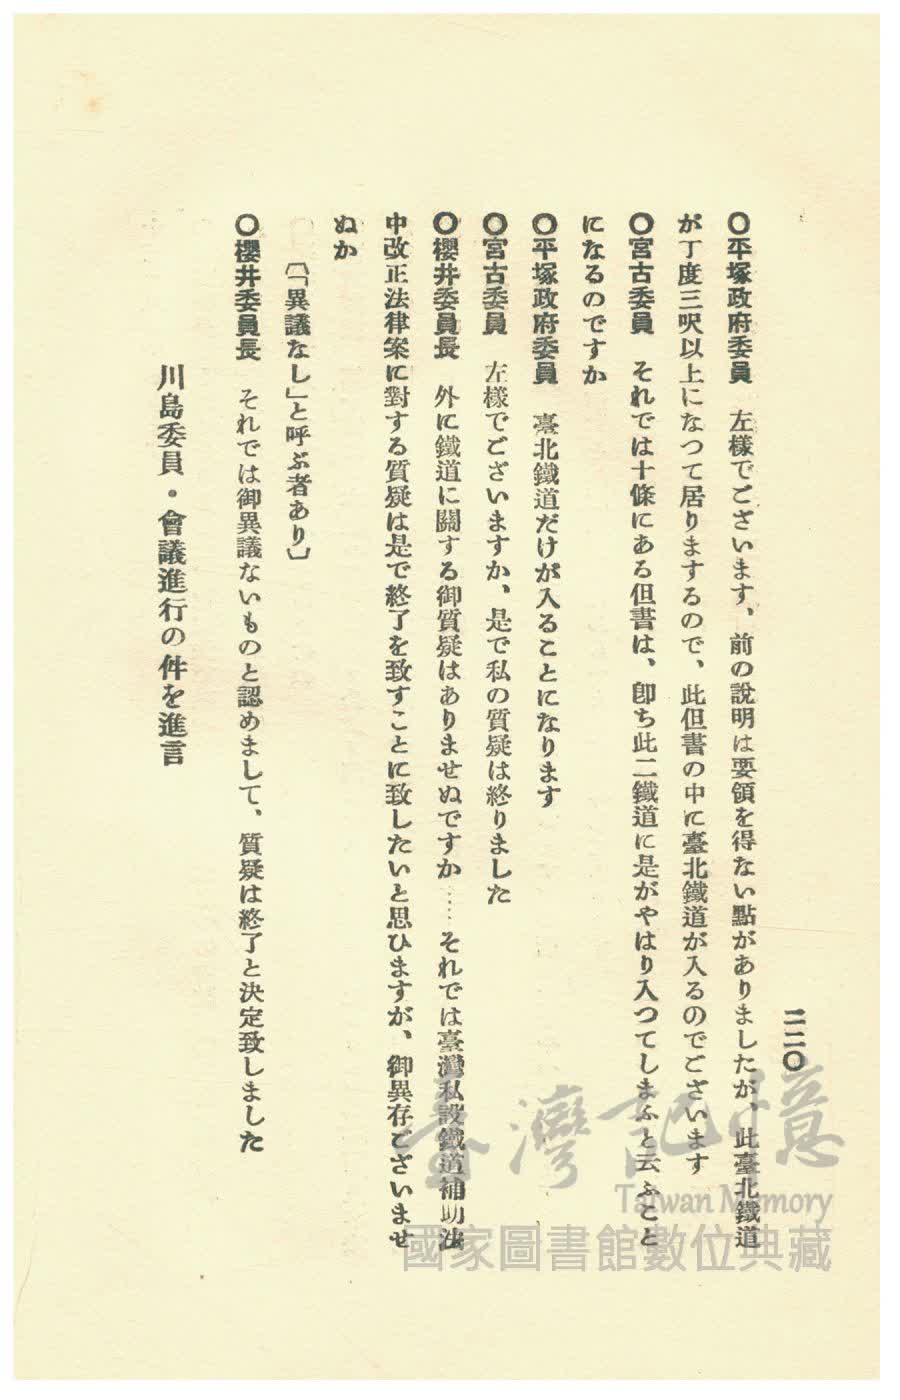 二二〇
〇平塚政府委員　左樣でございます、前の說明は要領を得ない點がありましたが、此臺北鐵道
が丁度三呎以上になつて居りまするので、此但書の中に臺北鐵道が入るのでございます
〇宮古委員　それでは十條にある但書は、卽ち此二鐵道に是がやはり入つてしまふと云ふこと
になるのですか
〇平塚政府委員　臺北鐵道だけが入ることになります
〇宮古委員　左樣でございますか、是で私の質疑は終りました
〇櫻井委員長　外に鐵道に關する御質疑はありませぬですか……それでは臺灣私設鐵道補助法
中改正法律案に對する質疑は是で終了を致すことに致したいと思ひますが、御異存ございませ
ぬか
〔「異議なし」と呼ぶ者あり〕
〇櫻井委員長　それでは御異議ないものと認めまして、質疑は終了と決定致しました
川島委員・會議進行の件を進言
臺灣記憶
Taiwan Memory
國家圖書館數位典藏